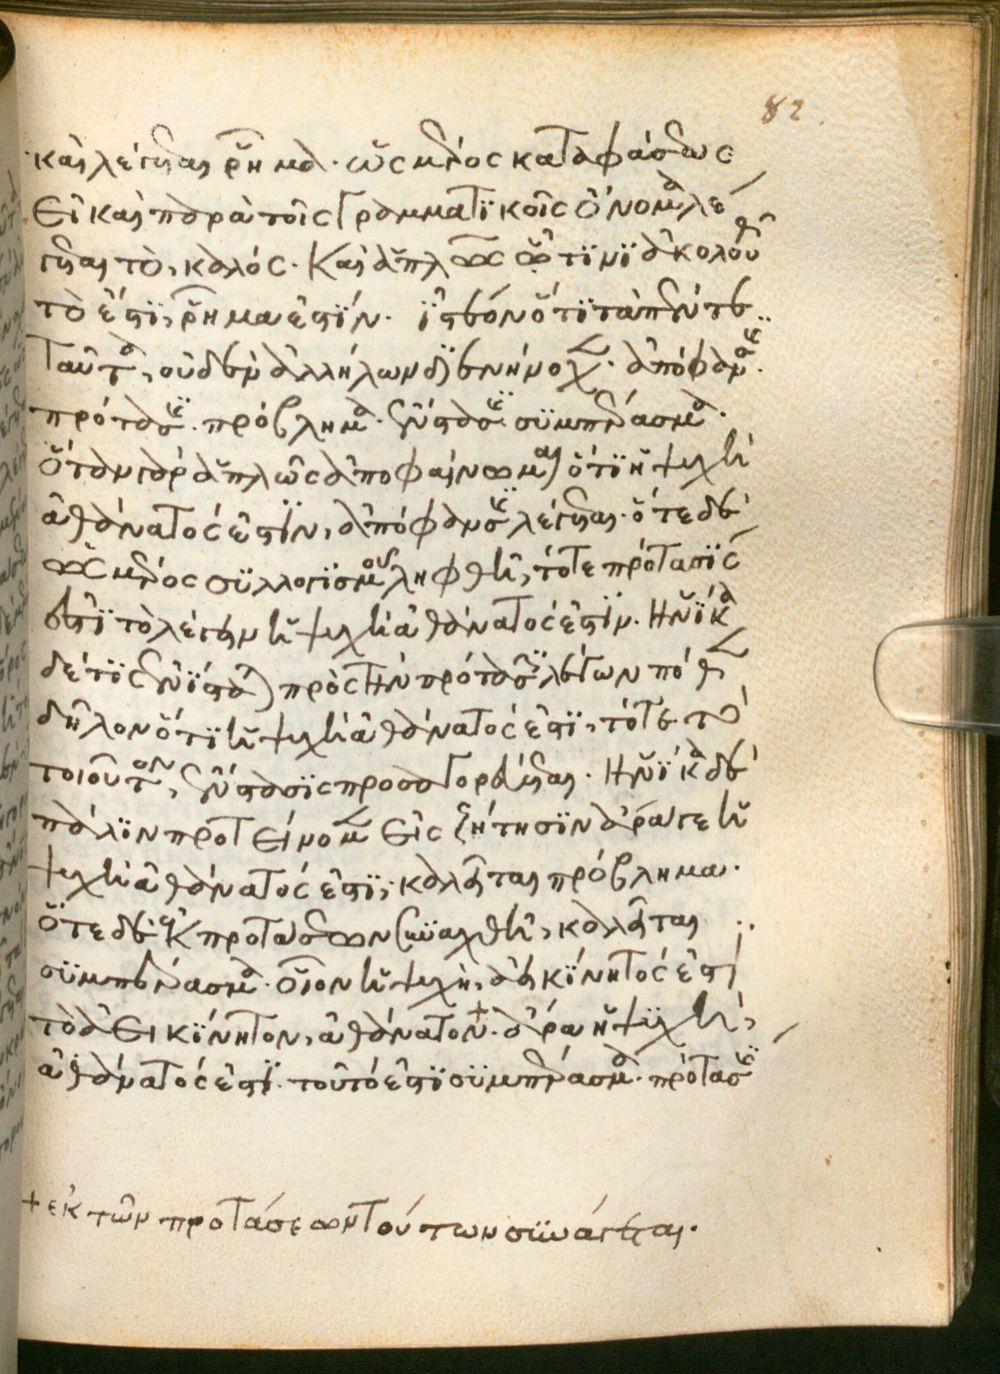 82
καὶ λέγεται ῥῆμα· ὡς μέρος καταφάσεως
εἰ καὶ παρὰ τοῖς γραμματικοῖς ὄνομα λέ
γεται τὸ, καλός. καὶ ἁπλῶς ὧ τινι ἀκολουθεῖ
τὸ ἐστὶ, ῥῆμα ἐστίν. ἰστέον ὅτι τὰ πέντε
ταῦτα, οὐδὲν ἀλλήλων διενήνοχε· ἀπόφανσις·
πρότασις· πρόβλημα· ἔνστασις· συμπέρασμα·
ὅταν γὰρ ἁπλῶς ἀποφαίνωμαι ὅτι ἡ ψυχὴ
ἀθάνατος ἐστὶν, ἀπόφανσις λέγεται· ὅτε δὲ
ὡς μέρος συλλογισμοῦ ληφθῆ, τότε πρότασις
ἐστὶ τὸ λέγειν ἡ ψυχὴ ἀθάνατος ἐστίν. Ἡνίκα
δέ τις ἐνίσταται πρὸς τὴν πρότασιν λέγων πόθεν
δῆλον ὅτι ἡ ψυχὴ ἀθάνατος ἐστὶ, τότε τὸ
τοιοῦτον, ἔνστασις προσαγορεύεται. Ἡνίκα δὲ
πάλιν προτείνομεν εἰς ζήτησιν ἆρά γε ἡ
ψυχὴ ἀθάνατος ἐστὶ, καλεῖται πρόβλημα·
ὅτε δὲ ἐκ προτάσεων συναχθῆ, καλεῖται
συμπέρασμα· οἷον ἡ ψυχὴ, ἀεικίνητος ἐστὶ
τὸ ἀεικίνητον, ἀθάνατον + ἄρα ἡ ψυχὴ,
ἀθάνατος ἐστὶ. τοῦτό ἐστι συμπέρασμα· πρότασις
+ ἐκ τῶν προτάσεων τούτων συνάγεται.